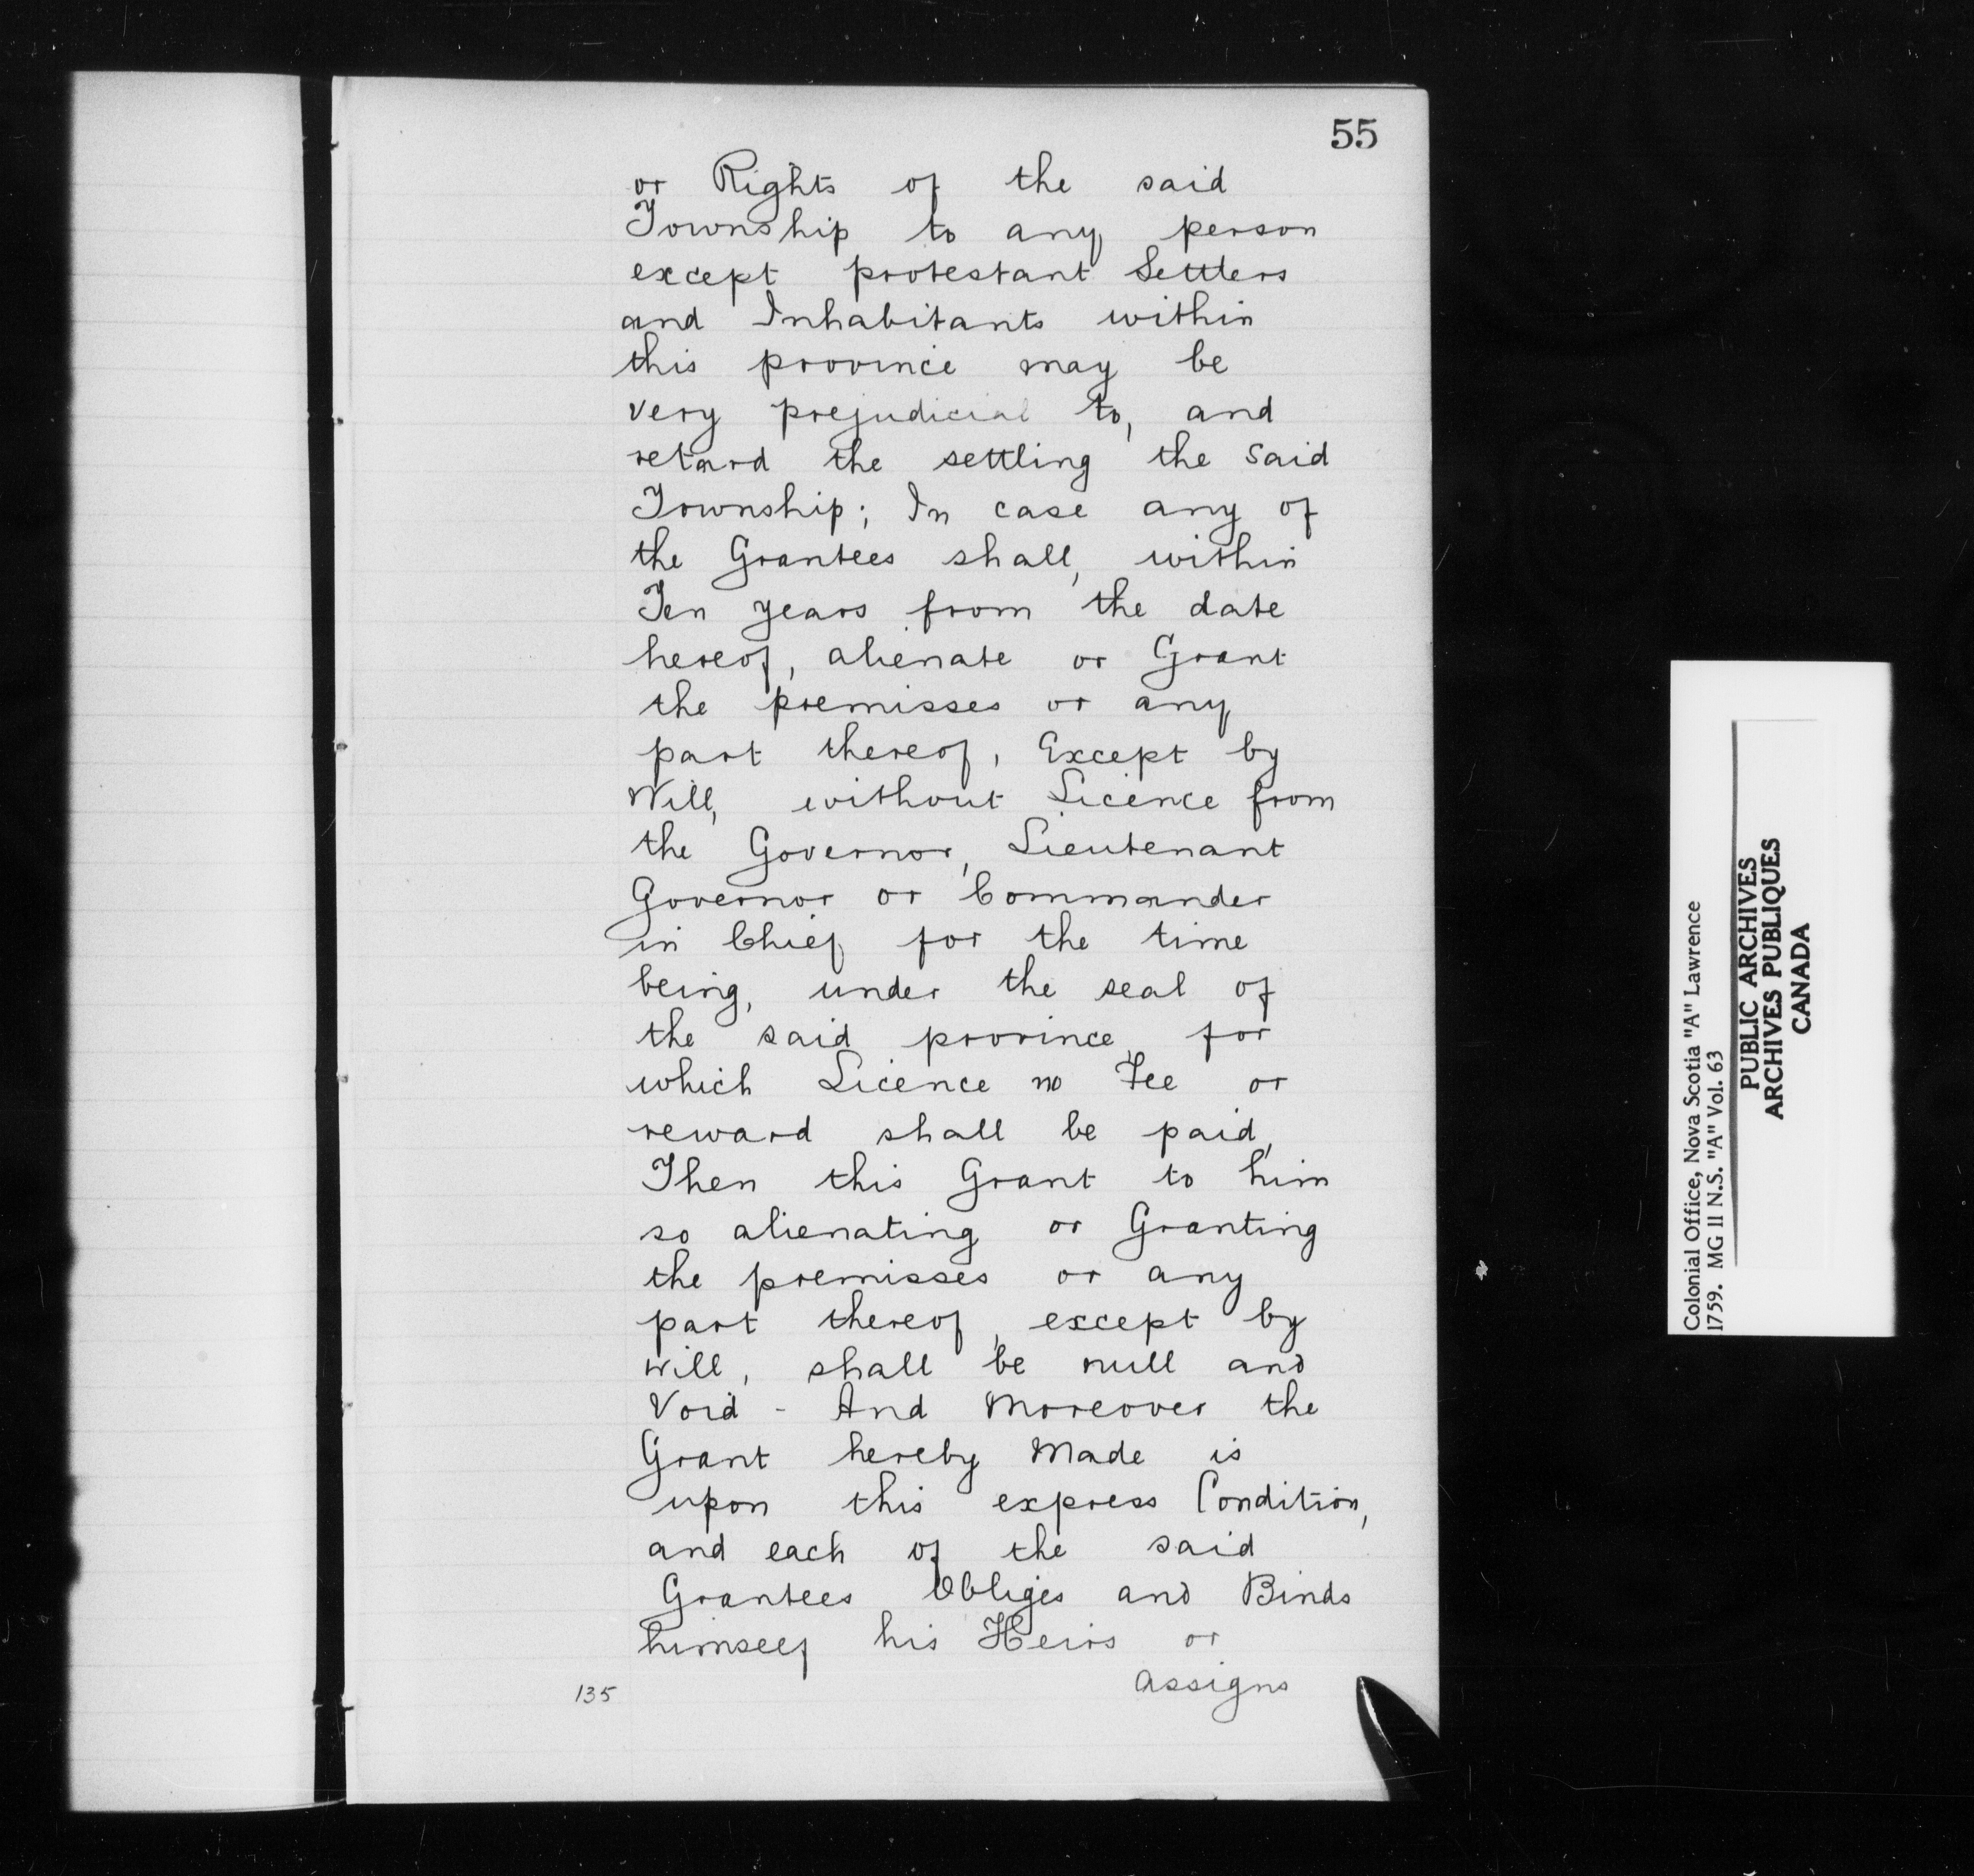 55
or Rights of the said
Township to any person
except protestant Settlers
and Inhabitants within
this province may be
very prejudicial to, and
retard the settling the said
Township; In case any of
the Grantees shall, within
Ten years from the date
hereof, alienate or Grant
the premisses or any
part thereof, Except by
Will, without Licence from
the Governor, Lieutenant
Governor or Commander
in Chief for the time
being, under the seal of
the said province, for
which Licence no Fee or
reward shall be paid,
Then this Grant to him
so alienating or Granting
the premisses or any
part thereof, except by
will, shall be null and
Void - And Moreover the
Grant hereby Made is
upon this express Condition,
and each of the said
Grantees Obliges and Binds
himself his Heirs or
assigns
135
Colonial Office, Nova Scotia "A" Lawrence
1759. MG II N.S. "A" Vol. 63
PUBLIC ARCHIVES
ARCHIVES PUBLIQUES
CANADA